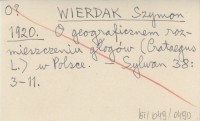 O?
WIERDAK Szymon
1920. O geograficznem roz-
mieszczeniu głogów (Crataegus
L.) w Polsce. – Sylwan 38:
3-11.